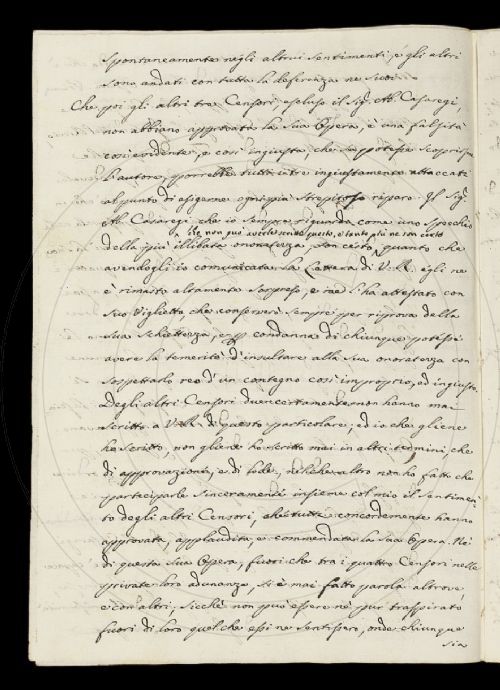 spontaneamente negli altrui sentimenti, e gli altri
sono andati con tutta la deferenza ne' suoi.
Che poi gli altri tre Censori, escluso il Sig.r Ab. Casaregi,
non abbiano approvato la sua Opera, è una falsità
così evidente, e così ingiusta, che se potesse scoprirsi
l'autore, porrebbe tutti e tre ingiustamente attaccati
al punto di esigerne ogni più strepitoso risarc. Il Sig.r
Ab. Casaregi che io sempre riguardo come uno specchio
della più illibata onoratezza, son certo, quanto che
avendogli io comunicata la Lettera di V.R. egli ne
è rimasto altamente sorpreso, e me l'ha attestato con
suo Viglietto che conserverò sempre per riprova della
sua schiettezza, e p condanna di chiunque potesse
avere la temerità d'insultare alla sua onoratezza con
sospettarlo reo d'un contegno così improprio, ed ingiusto.
Degli altri Censori due certamente non hanno mai
scritto a V.R. di questo particolare, ed io che gliene
ho scritto, non gliene ho scritto mai in altri termini, che
di approvazione, e di lode, nel che altro non ho fatto che
parteciparle sinceramente insieme col mio il sentimen
to degli altri Censori, che tutti concordemente hanno
approvata, applaudita, e commendata la sua Opera. Nè
di questa sua Opera, fuori che tra i quattro Censori nelle
private loro adunanze, si è mai fatto parola altrove,
e con altri; sicchè non può essere nè pur traspirato
fuori di loro quel che essi ne sentissero, onde chiunque
sia